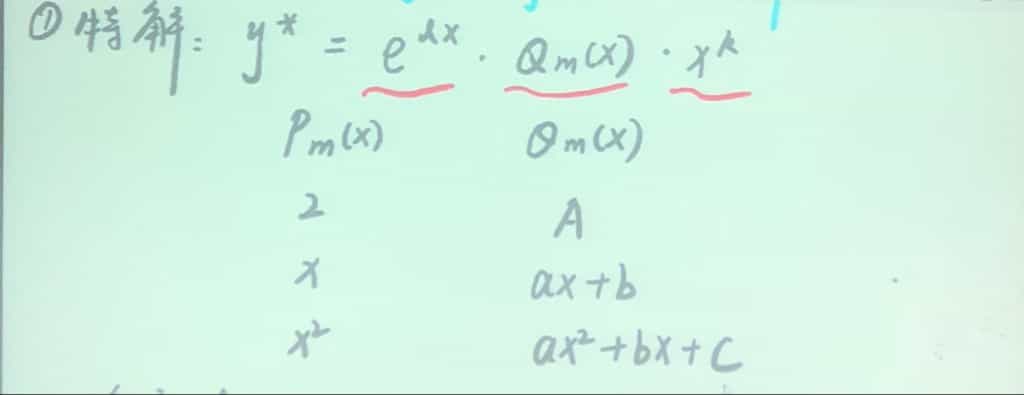 ① 特解: y* = e^{λx} · Qm(x) · x^k
Pm(x) Qm(x)
2 A
x ax+b
x² ax²+bx+C